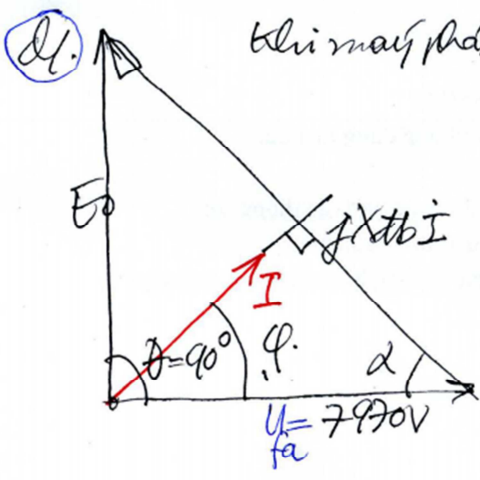 d/.
Khi máy phá
E₀
jXđb İ
I
θ=90°
φ.
α
U = 7970V
fa